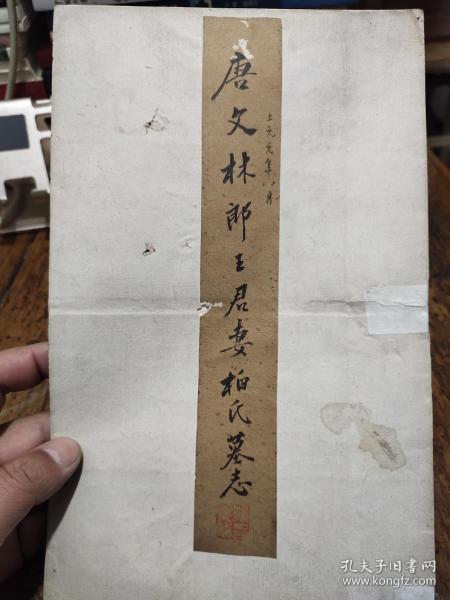 唐文林郎王君妻柏氏墓志
上元元年八月
孔夫子旧书网
www.kongfz.com